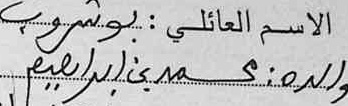 الاسم العائلي : بوشروب
والده : محمد بن ابراهيم